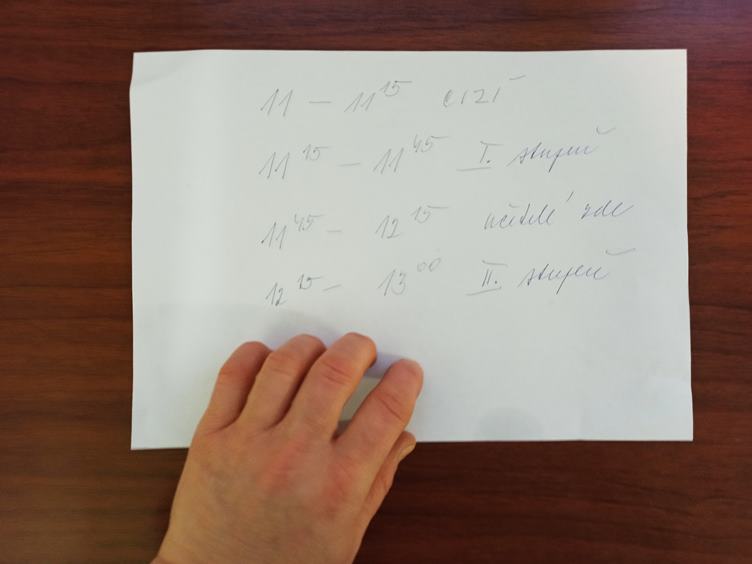 11 – 11 15 CIZÍ
11 15 – 11 45 I. stupeň
11 45 – 12 15 učitelé zde
12 15 – 13 00 II. stupeň